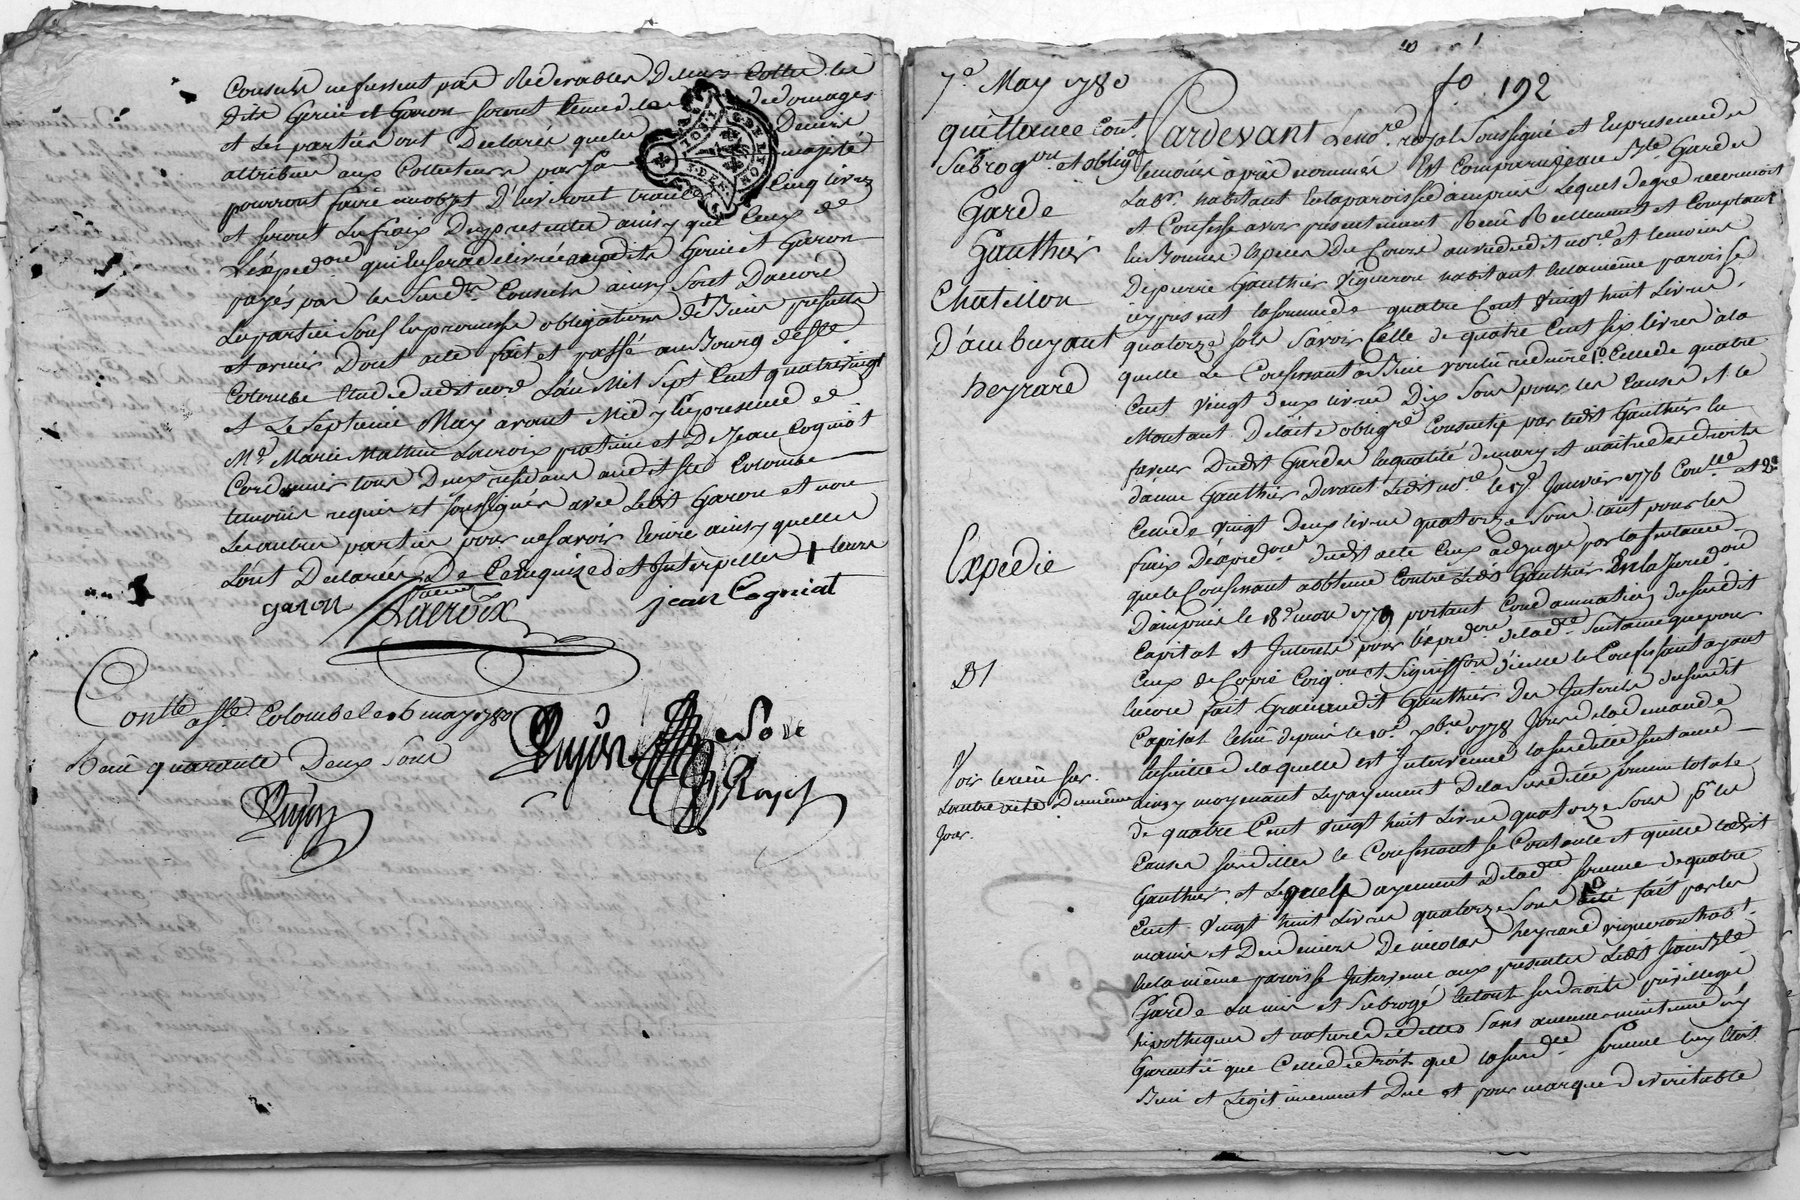 Consuls ne fussent pas Redevables De leurs Cottes les
dits Genin et Garon seront tenus de les dedomages
et les parties ont Declarés que les Deniers
attribues aux Collecteurs par sa
pourront faire un objet D'environt trante Cinq livres
et seront les fraix Des presentes ainsy que Ceux de
L'expedon qui en sera delivrée auxdits Genin et Garon
payés par les Susdts Consuls ainsy sont D'accord
Les parties sous les promesses obligations de Biens presents
et avenir Dont acte fait et passé au Bourg de Ste
Colombe Etude dudt nore L'an Mil Sept Cent quatrevingt
et Le Septieme May avant Midy En presence de
Me Marie Mathieu Lacroix praticien et De Jean Cogniot
Cordonnier tous Deux residans audit Ste Colombe
temoins requis et soussignés avec Ledt Garon et non
Les autres parties pour ne Savoir Ecrire ainsy quelles
L'ont Declarées De Ce enquises et Interpellés + leurs
garon Lacroix jean Cogniat
Contlé a Ste Colombe le 16 may 1780
Reçu quarante Deux Sous
Dujon
7e May 1780
fo 192
quittance Cont.
Subrogon et oblig.
Garde
Gauthier
Chatillon
D'ambuyant
heyrard
Expedié
Pardevant Le nore royal Soussigné et En presence des
temoins après nommés Est Comparu Jean Bte Gardes
Labr. habitant En la paroisse d'ampuis Lequel de gré reconnoit
et Confesse avoir presentement Reçu Reellement et Comptant
En Bonnes Especes De Cours au vû dudit nore et temoins
De pierre Gauthier Vigneron habitant En la même paroisse
icy present la somme de quatre Cent Vingt huit Livres
quatorze sols Savoir Celle de quatre Cent six livres à la
quelle Le Confessant a Bien voulu reduire Celle de quatre
Cent vingt deux livres Dix Sous pour les Causes et le
Montant De l'acte obligre Consentie par ledit Gauthier En
faveur Dudt Gardes En qualité de mary et maitre des droits
d'anne Gauthier Devant Ledt nore le 17e Janvier 1776 Contlé et 2e
Celle de Vingt Deux livres quatorze Sous tant pour les
fraix D'expedon dudt acte Ceux adjugés par la Sentence
que le Confessant a obtenue Contre Ledt Gauthier En la Juredon
D'ampuis le 18e mars 1779 portant Condamnation du susdit
Capital et Interets pour l'expedon de lade Sentence que pour
Ceux de Copie et Signiffon d'icelle le Confessant ayant
Encore fait Grace audit Gauthier Des Interets du susdit
Capital Echus depuis le 10e Xbre 1778 Jour de la demande
En suitte de laquelle est Intervenue la susditte sentence
ainsy moyenant Le payement De la Susditte somme totale
de quatre Cent Vingt huit Livres quatorze Sous pr les
Causes susdittes le Confessant se Contente et quitte ledit
Gauthier et Lequel payement De lade somme de quatre
Cent Vingt huit Livres quatorze Sous a été fait par les
mains et Des deniers De nicolas heyrard vigneron habt.
En la même paroisse Intervenu aux presentes Ledt Jean Bte
Garde La mis et Subrogé En tous ses droits privilleges
hipotheques et nature d'icelles Sans aucune maintenue ny
Garantie que Celle De droit que la susde somme luy Etoit
Bien et Legitimement Due et pour marque de veritable
Voir le reçu sur
L'autre acte Du même
Jour.